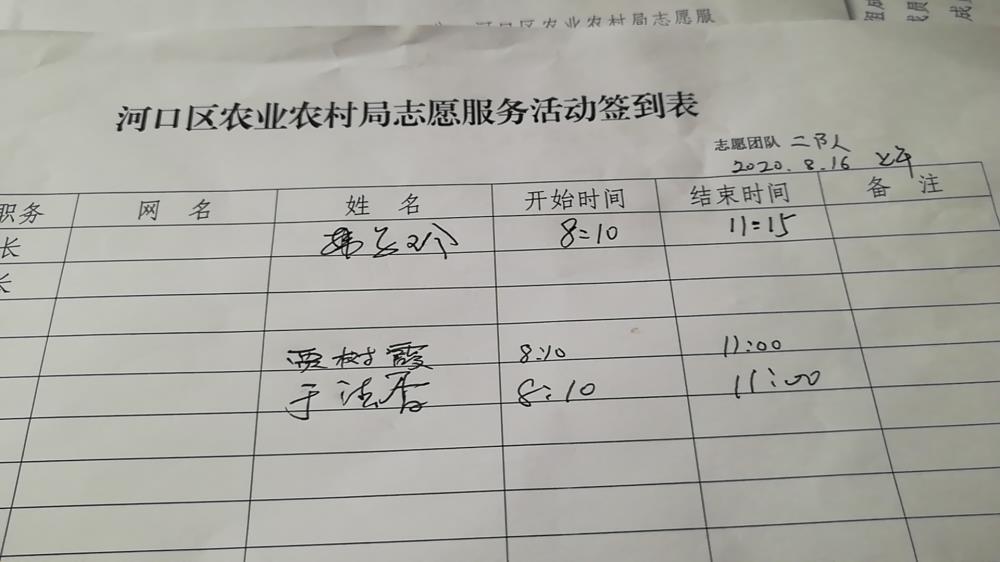 河口区农业农村局志愿服
河口区农业农村局志愿服务活动签到表
志愿团队
2020.8.16 上午
职务 网名 姓名 开始时间 结束时间 备注
长 8:10 11:15
长
贾树霞 8:10 11:00
于法香 8:10 11:00